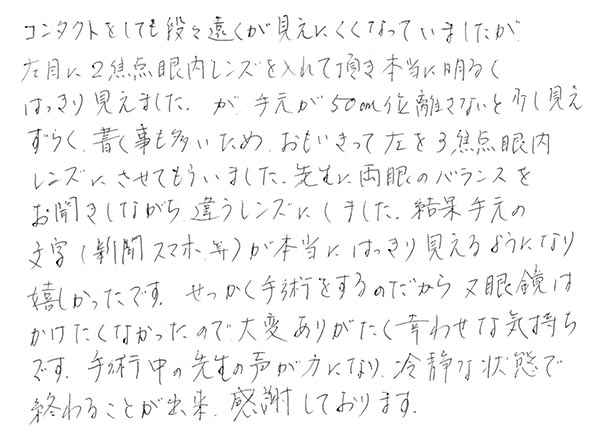 コンタクトをしても段々遠くが見えにくくなっていましたが
左目に2焦点眼内レンズを入れて頂き本当に明るく
はっきり見えました、が、手元が50cm位離さないと少し見え
ずらく、書く事も多いため、おもいきって左を3焦点眼内
レンズにさせてもらいました。先生に両眼のバランスを
お聞きしながら、違うレンズにしました。結果手元の
文字(新聞、スマホ、等)が本当にはっきり見えるようになり
嬉しかったです。せっかく手術をするのだから又眼鏡は
かけたくなかったので、大変ありがたく幸わせな気持ち
です。手術中の先生の声が力になり、冷静な状態で
終わることが出来、感謝しております。